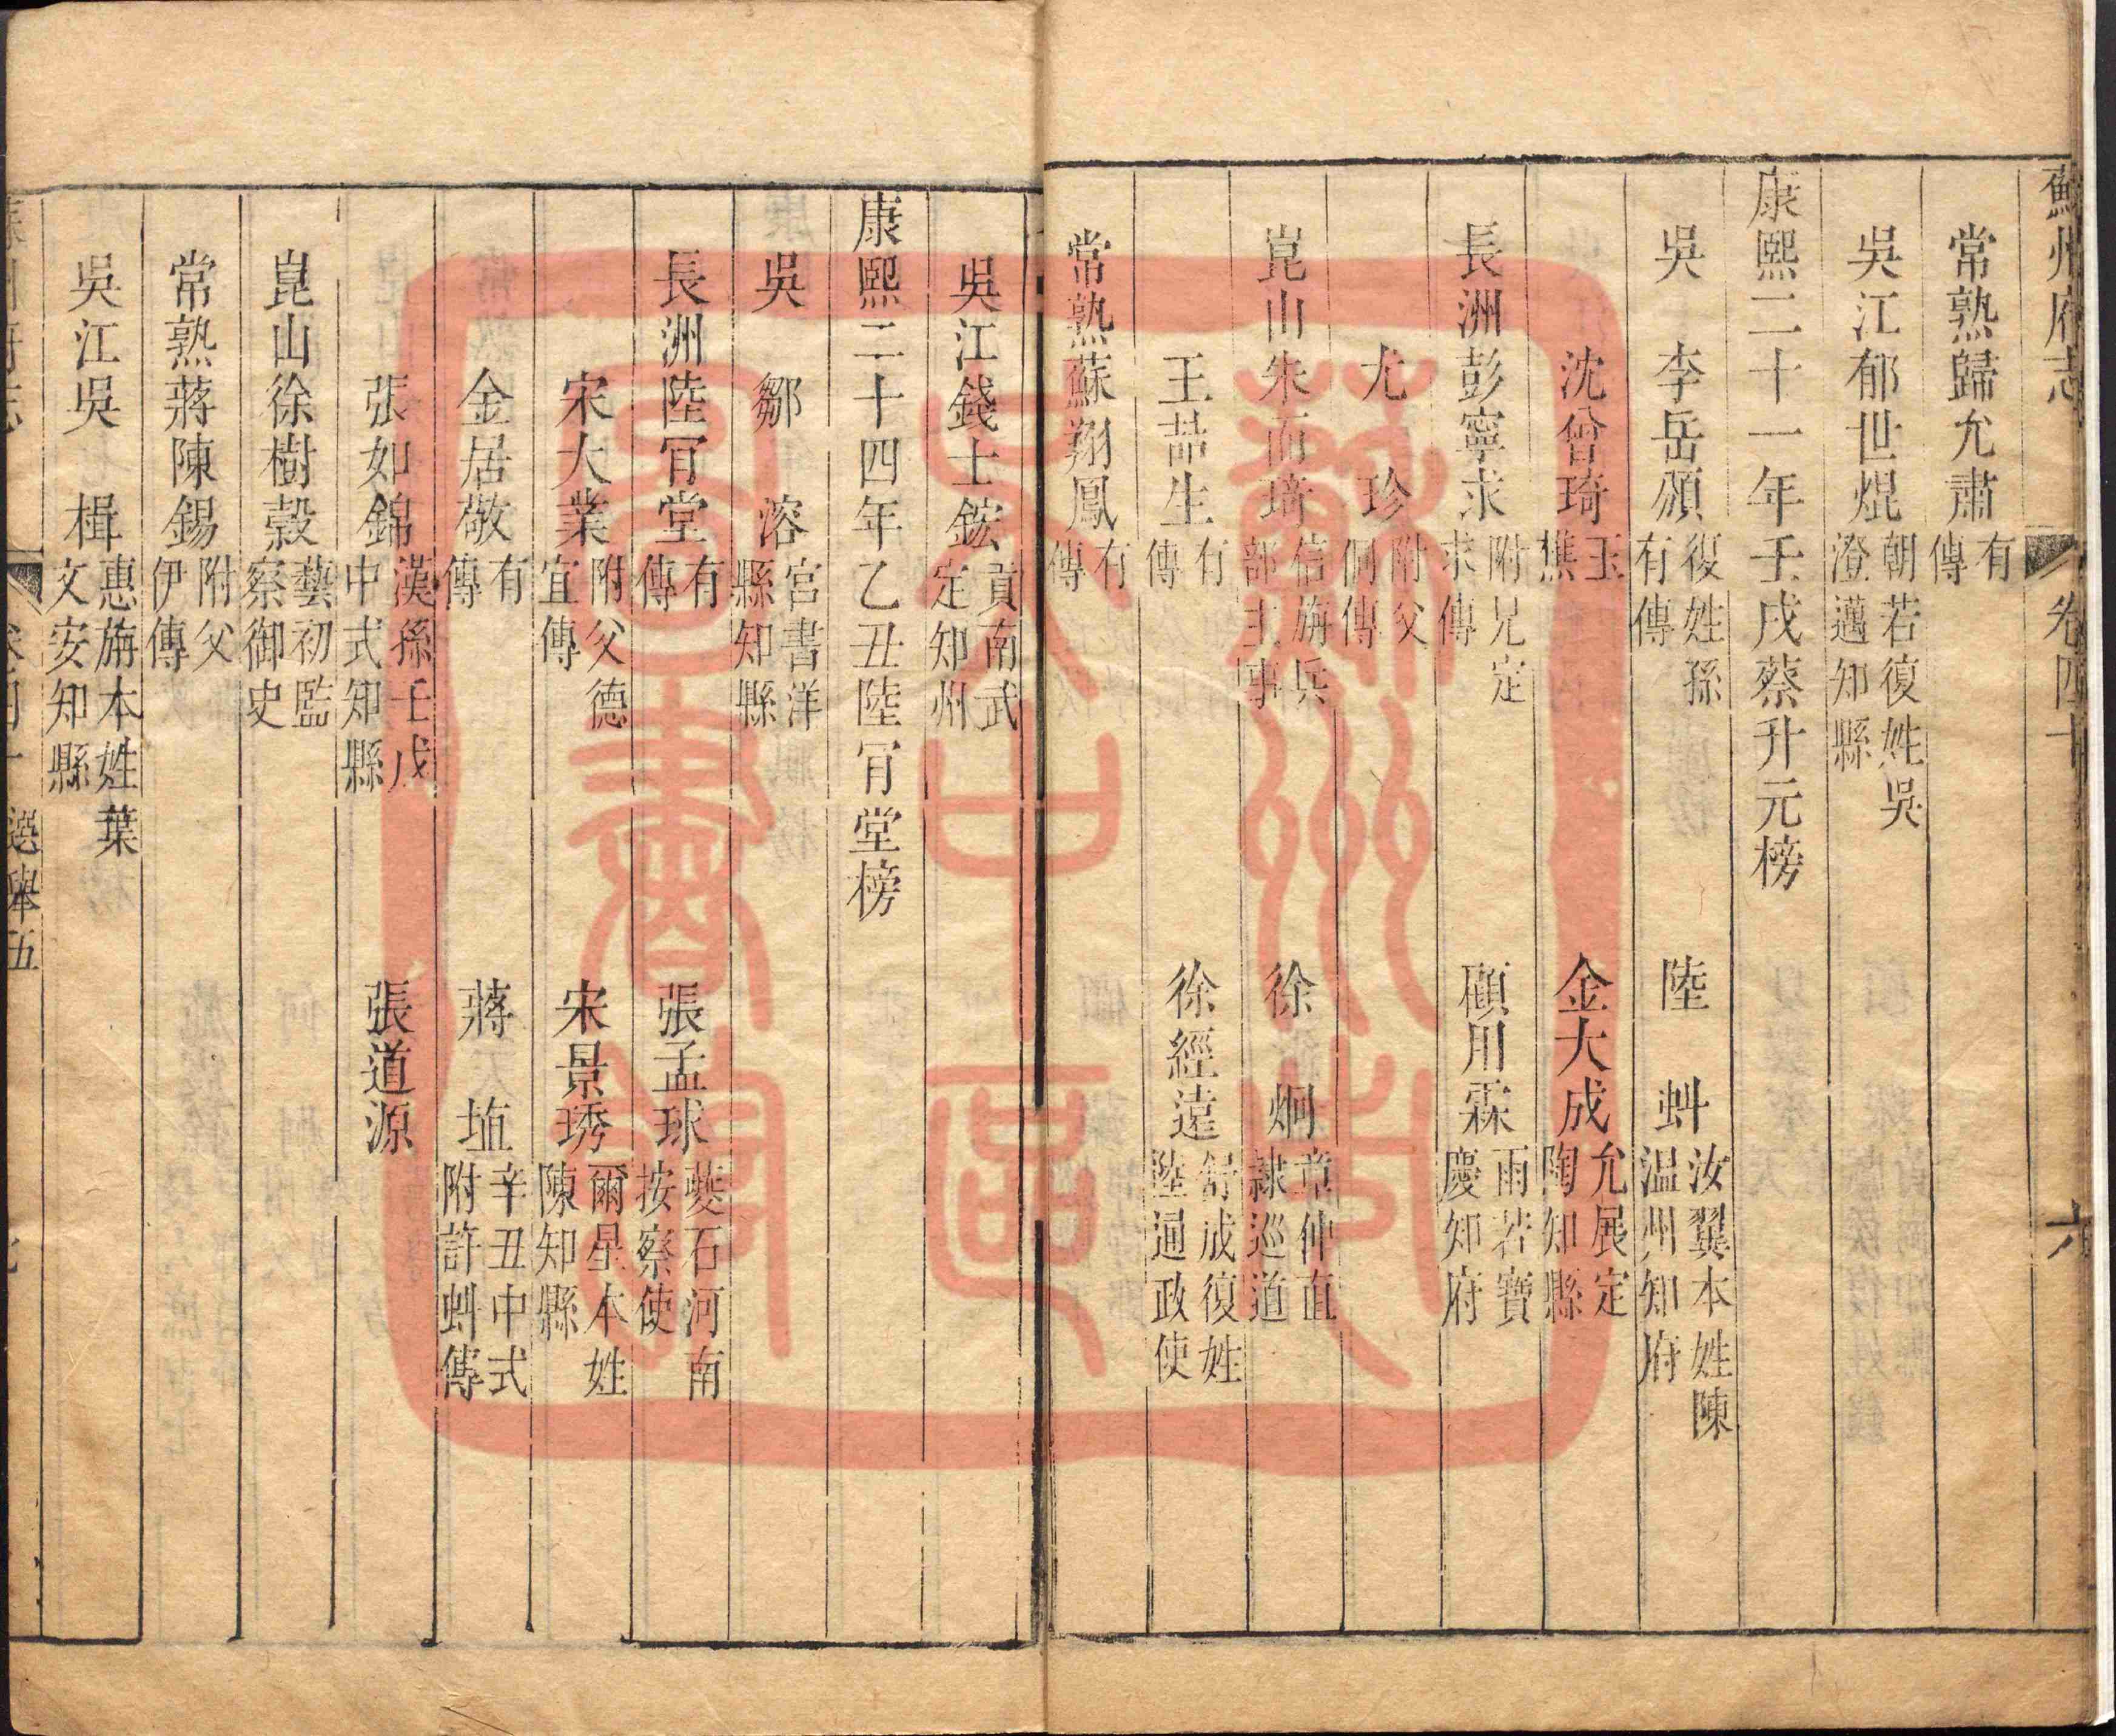 蘇州府志 卷四十 六
常熟歸允肅 有傳
吳江郁世焜 朝若復姓吳澄邁知縣
康熙二十一年壬戌蔡升元榜
吳 李岳頒 復姓孫有傳 陸𧉧 汝翼本姓陳温州知府
沈曾琦 玉樵 金大成 允展定陶知縣
長洲彭寧求 附兄定求傳 顧用霖 雨若寶慶知府
尤珍 附父侗傳
崑山朱而琦 信旃兵部主事 徐炯 章仲直隷巡道
王喆生 有傳 徐經遠 舒成復姓陸通政使
常熟蘇翔鳳 有傳
吳江錢士鋐 貢南武定知州
康熙二十四年乙丑陸肎堂榜
吳 鄒溶 宮書洋縣知縣
長洲陸肎堂 有傳 張孟球 夔石河南按察使
宋大業 附父德宜傳 宋景琇 爾星本姓陳知縣
金居敬 有傳 蔣埴 辛丑中式附許𧉧傳
張如錦 漢孫壬戌中式知縣 張道源
崑山徐樹穀 藝初監察御史
常熟蔣陳錫 附父伊傳
吳江吳楫 惠旃本姓葉文安知縣
選舉五